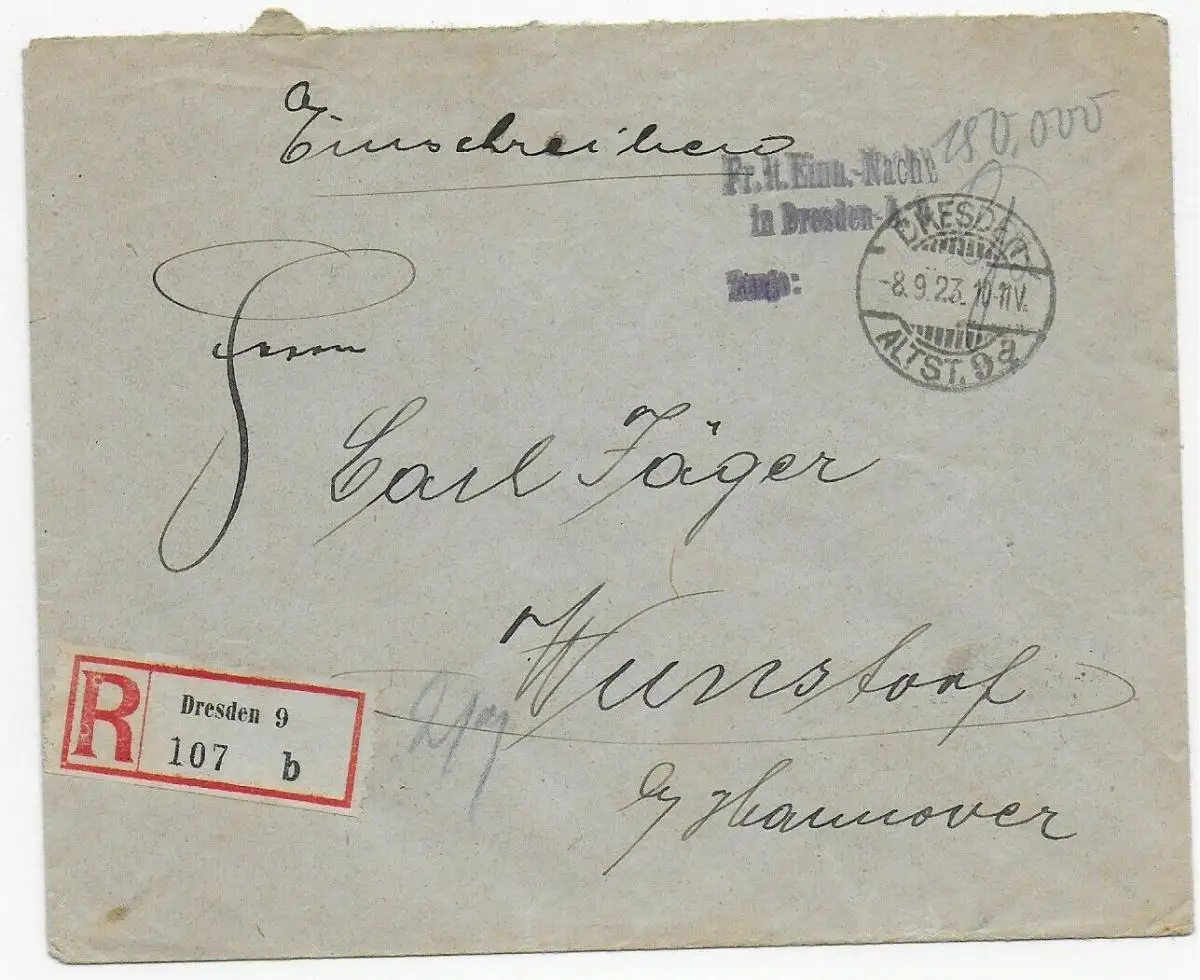 Einschreiben
180,000
Fr. lt. Einn.-Nachw.
in Dresden-A. 9
DRESDEN
-8.9.23. 10-11V.
ALTST. 9 a
Herrn
Carl Jäger
Wunstorf
b/Hannover
R
Dresden 9
107 b